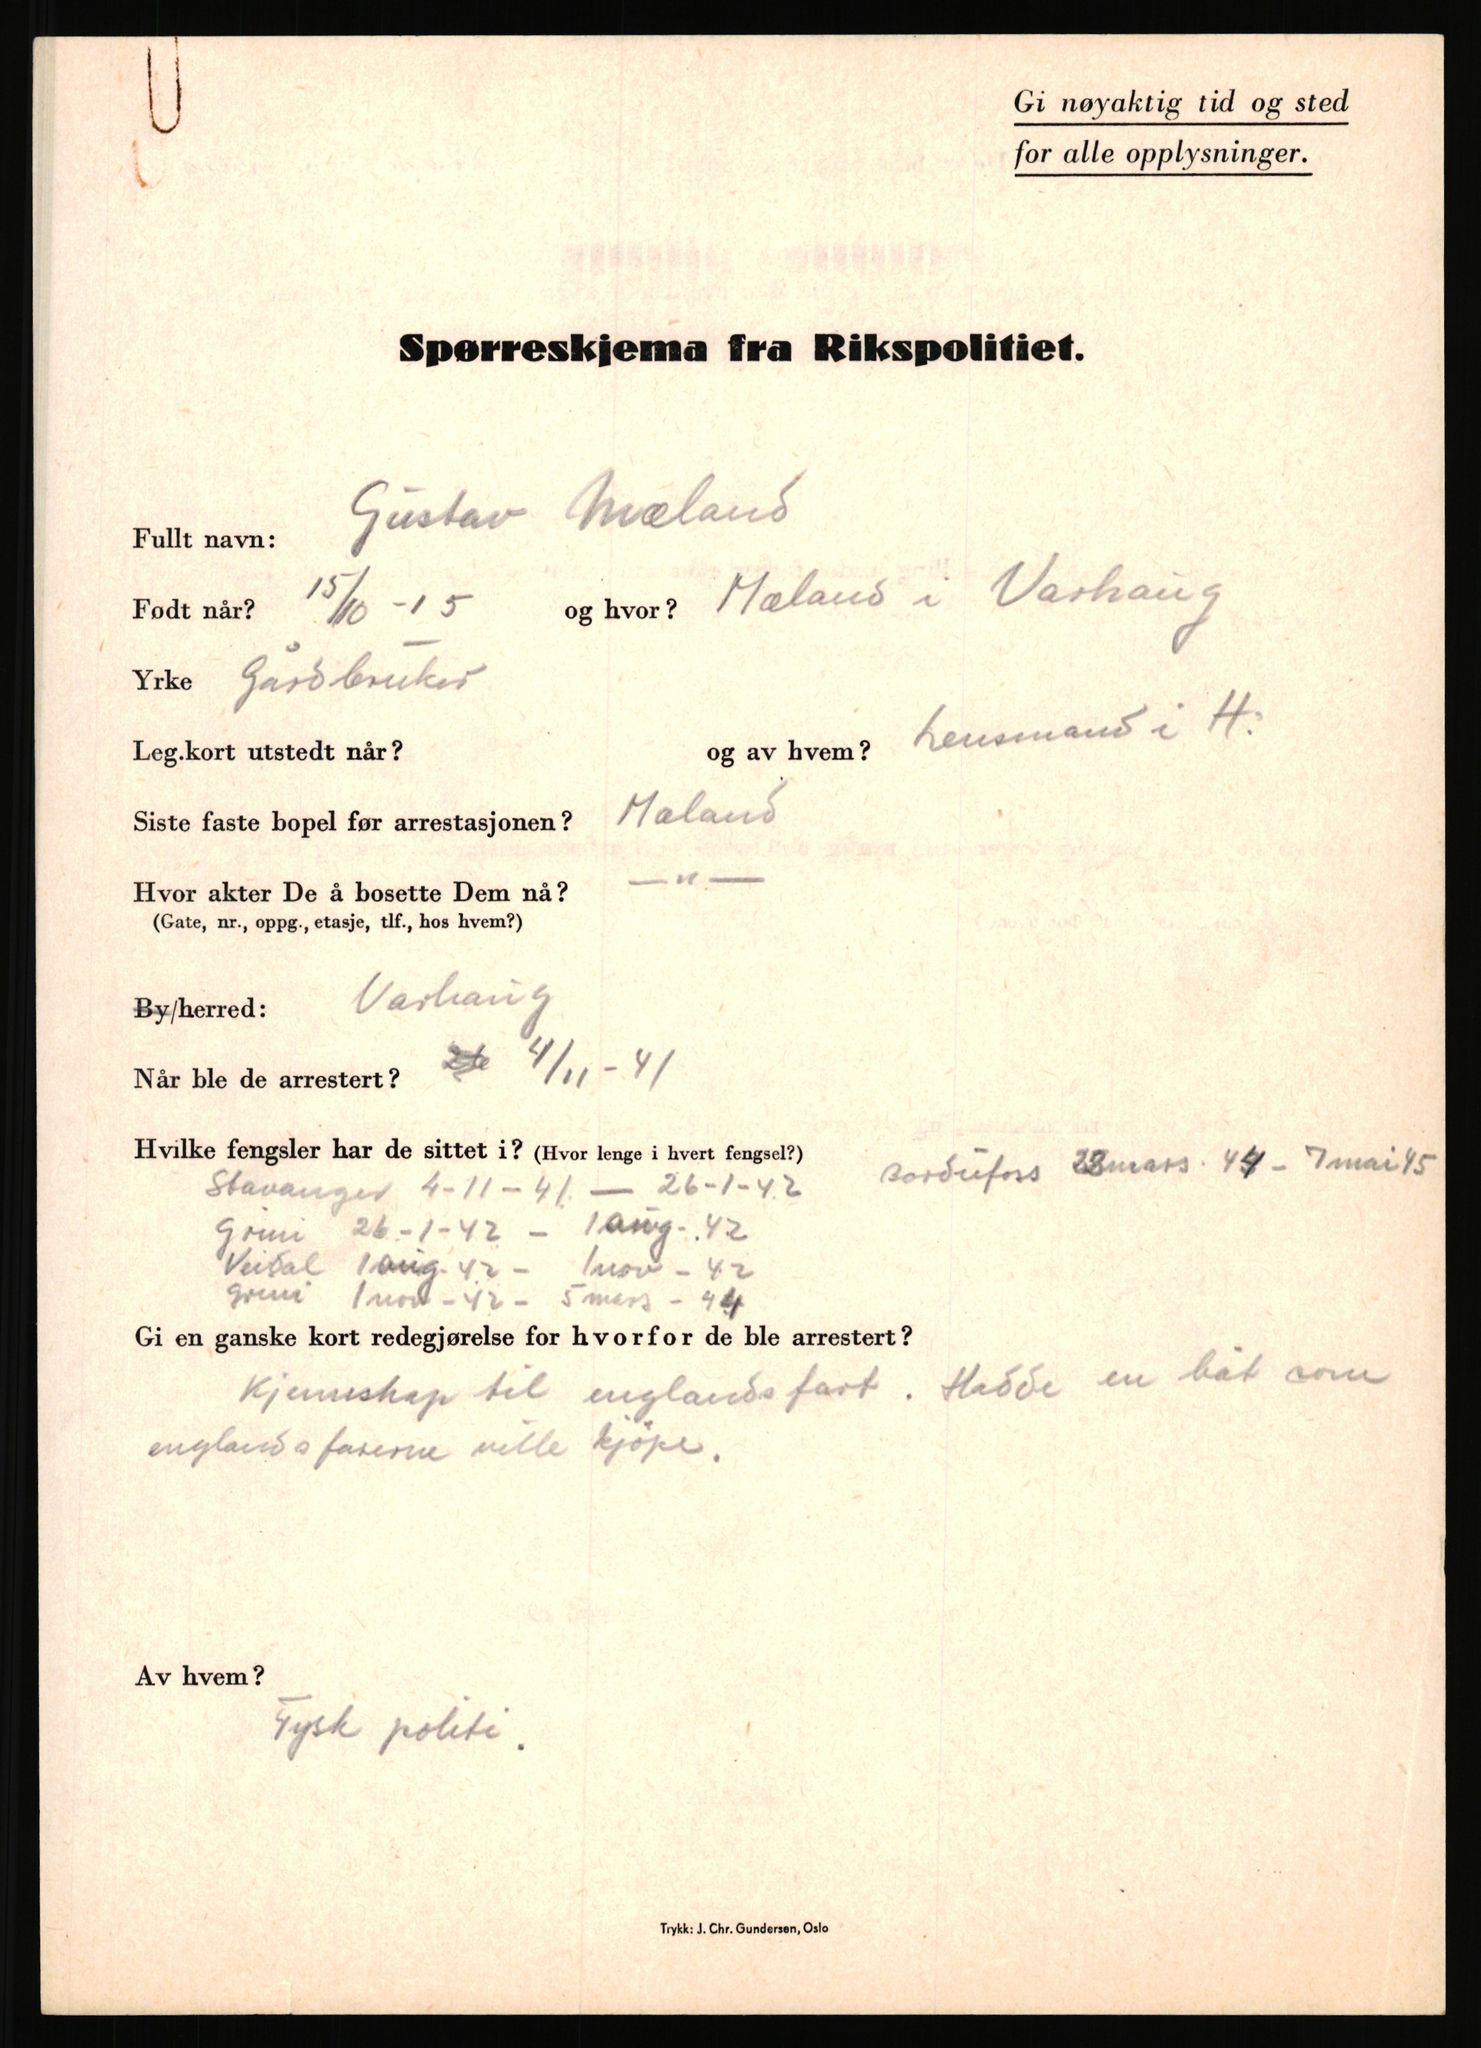 Gi nøyaktig tid og sted
for alle opplysninger.
Spørreskjema fra Rikspolitiet.
Fullt navn: Gustav Mæland
Født når? 15/10 - 15 og hvor? Mæland i Varhaug
Yrke Gårdbruker
Leg.kort utstedt når? og av hvem? Lensmand i H.
Siste faste bopel før arrestasjonen? Mæland
Hvor akter De å bosette Dem nå? — " —
(Gate, nr., oppg., etasje, tlf., hos hvem?)
By/herred: Varhaug
Når ble de arrestert? 4/11 - 41
Hvilke fengsler har de sittet i? (Hvor lenge i hvert fengsel?)
Stavanger 4-11-41. — 26-1-42 mars. 44 - 7 mai 45
Grini 26-1-42 - 1 aug-.42
Veidal 1 aug. 42 - 1 nov - 42
Grini 1 nov - 42 - 5 mars - 44
Gi en ganske kort redegjørelse for hvorfor de ble arrestert?
Kjennskap til englandsfart. Hadde en båt som
englandsfarerne ville kjöpe.
Av hvem?
Tysk politi.
Trykk: J. Chr. Gundersen, Oslo